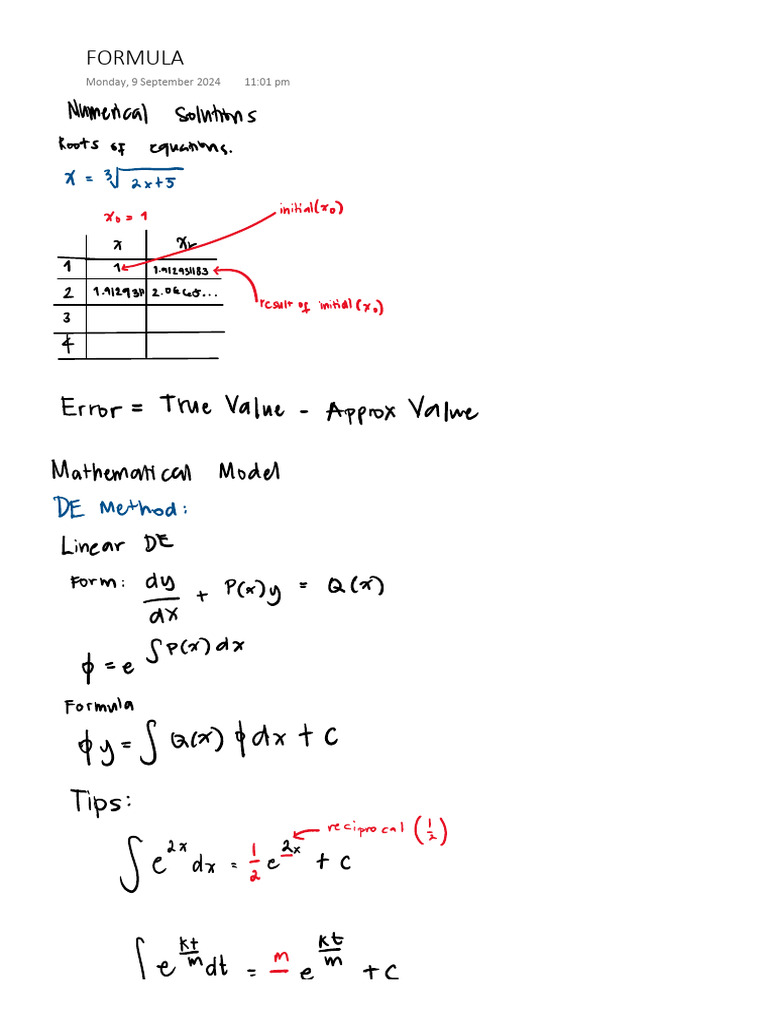 FORMULA
Monday, 9 September 2024 11:01 pm
Numerical Solutions
Roots of equations.
x = ∛(2x+5)
x₀ = 1
initial (x₀)
x xᵣ
1 1 1.912931183
2 1.912931 2.0665...
result of initial (x₀)
3
4
Error = True Value - Approx Value
Mathematical Model
DE Method:
Linear DE
Form: dy/dx + P(x)y = Q(x)
ϕ = e^∫P(x)dx
Formula
ϕy = ∫ Q(x) ϕdx + C
Tips:
reciprocal (1/2)
∫ e^2x dx = 1/2 e^2x + C
∫ e^kt/m dt = m/ e^kt/m + C